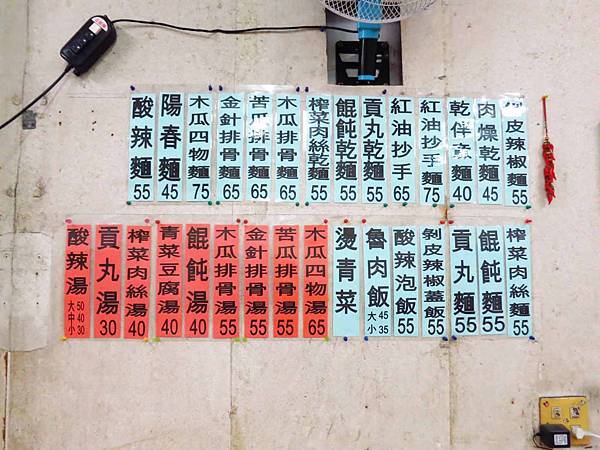 酸辣麵 55
陽春麵 45
木瓜四物麵 75
金針排骨麵 65
苦瓜排骨麵 65
木瓜排骨麵 65
榨菜肉絲乾麵 55
餛飩乾麵 55
貢丸乾麵 55
紅油抄手 65
紅油抄手麵 75
乾伴意麵 40
肉燥乾麵 45
皮辣椒麵 55
酸辣湯 大50 中40 小30
貢丸湯 30
榨菜肉絲湯 40
青菜豆腐湯 40
餛飩湯 40
木瓜排骨湯 55
金針排骨湯 55
苦瓜排骨湯 55
木瓜四物湯 65
燙青菜
魯肉飯 大45 小35
酸辣泡飯 55
剝皮辣椒蓋飯 55
貢丸麵 55
餛飩麵 55
榨菜肉絲麵 55